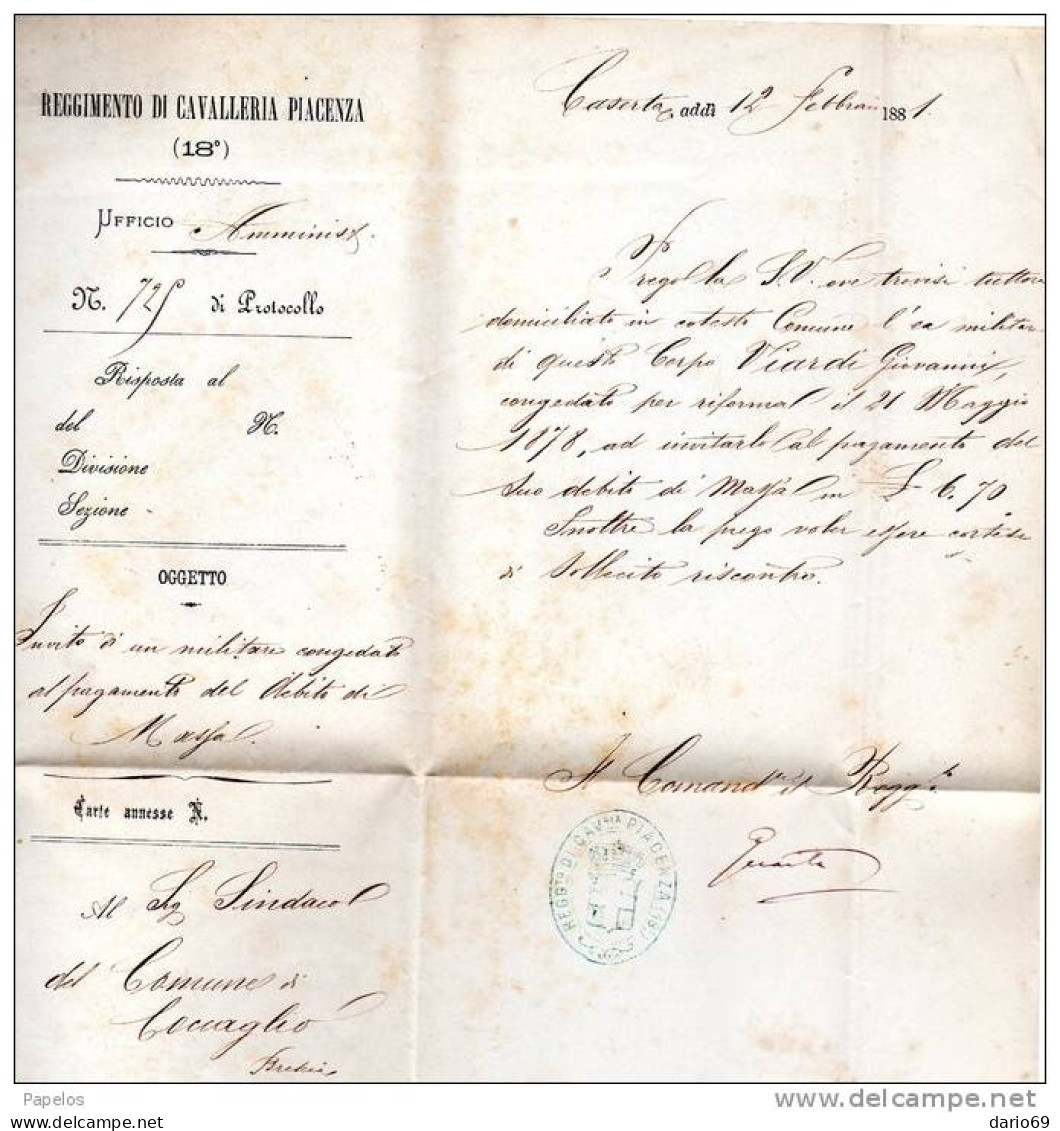 REGGIMENTO DI CAVALLERIA PIACENZA
(18º)
UFFICIO Amminist.
N. 725 di Protocollo
Risposta al
del N.
Divisione
Sezione
OGGETTO
Invito di un militare congedato
al pagamento del debito di
Massa.
Carte annesse N.
Al Sig Sindaco
del Comune di
Coccaglio
Brescia
Caserta, addì 12 Febbraio 1881.
Prego la S.V. ove trovisi tuttora
domiciliato in cotesto Comune l'ex militare
di questo Corpo Viardi Giovanni,
congedato per riforma il 21 Maggio
1878, ad invitarlo al pagamento del
suo debito di Massa in L. 6.70
Inoltre la prego voler essere cortese
di sollecito riscontro.
Il Comand.te il Regg.to
REGGTO DI CAVRIA PIACENZA (18º)
Papelos
www.delcampe.net
dario69